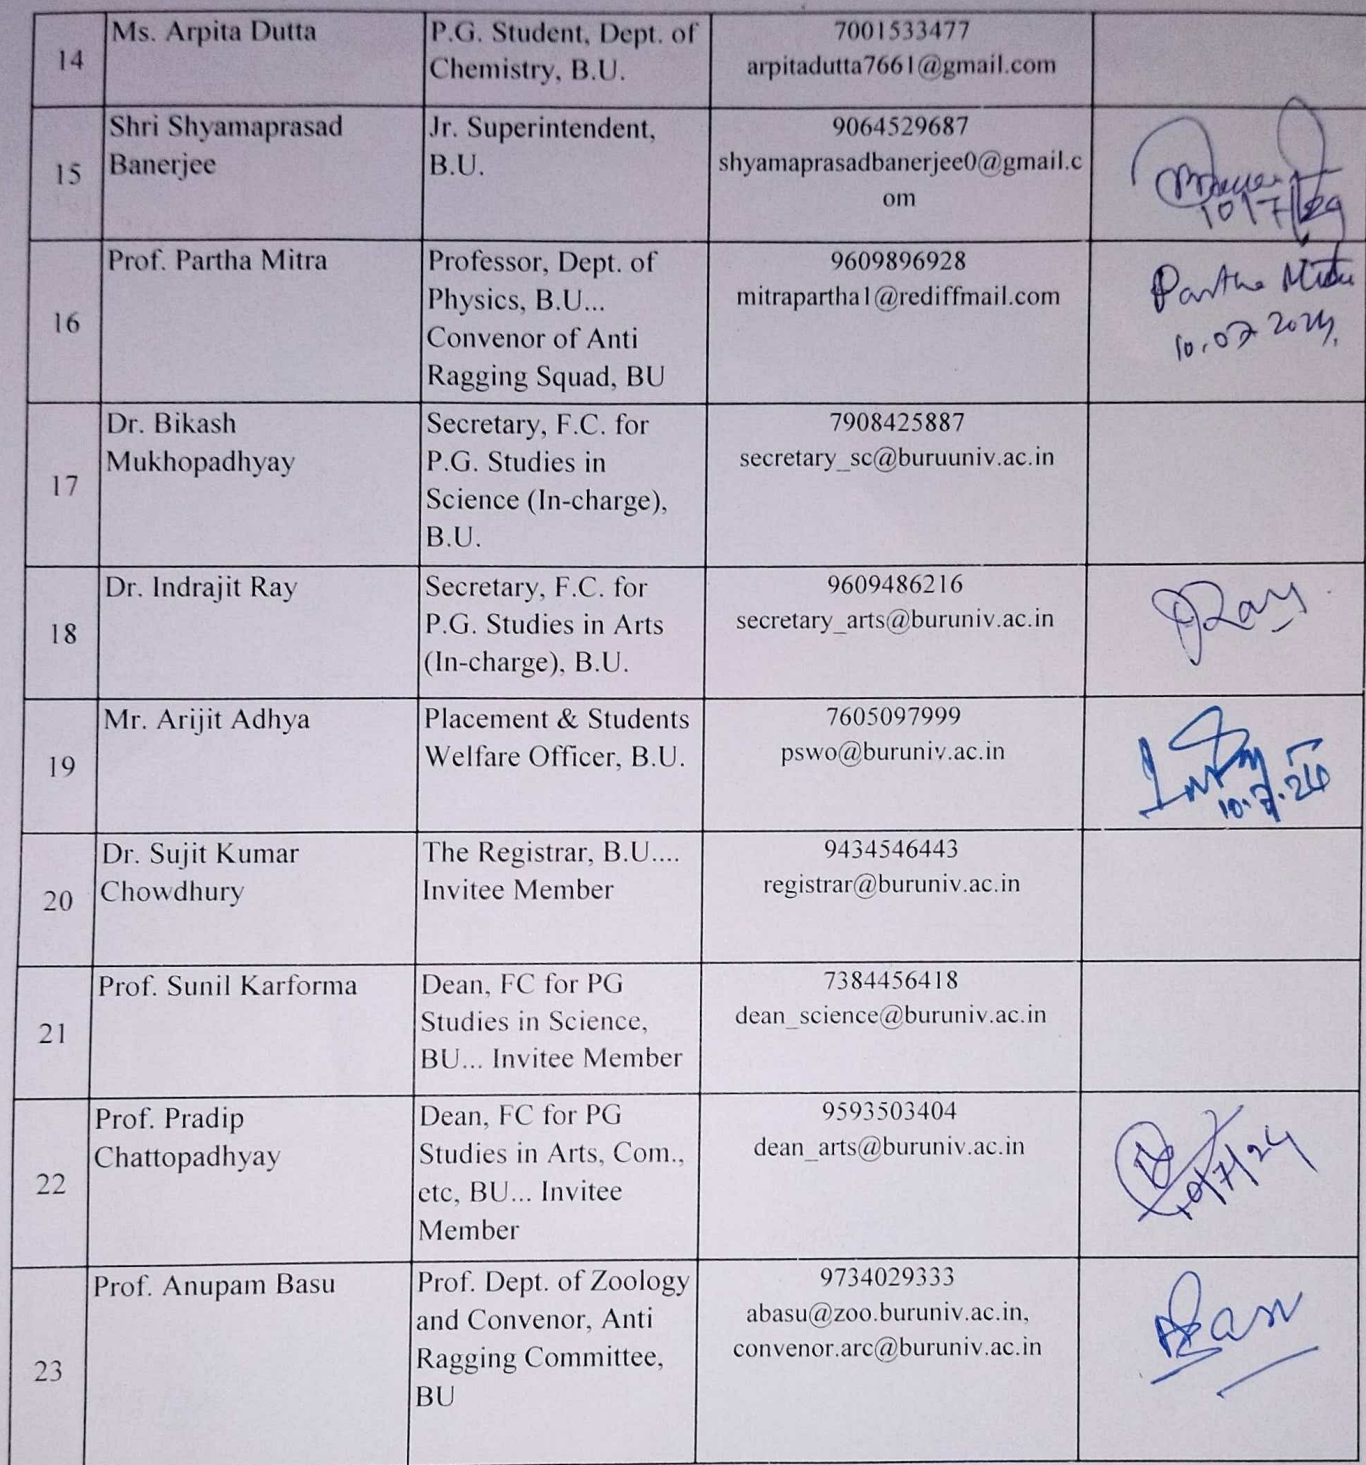 14
Ms. Arpita Dutta
P.G. Student, Dept. of
Chemistry, B.U.
7001533477
arpitadutta7661@gmail.com
15
Shri Shyamaprasad
Banerjee
Jr. Superintendent,
B.U.
9064529687
shyamaprasadbanerjee0@gmail.c
om
10/7/24
16
Prof. Partha Mitra
Professor, Dept. of
Physics, B.U...
Convenor of Anti
Ragging Squad, BU
9609896928
mitrapartha1@rediffmail.com
Partha Mitra
10.07.2024
17
Dr. Bikash
Mukhopadhyay
Secretary, F.C. for
P.G. Studies in
Science (In-charge),
B.U.
7908425887
secretary_sc@buruuniv.ac.in
18
Dr. Indrajit Ray
Secretary, F.C. for
P.G. Studies in Arts
(In-charge), B.U.
9609486216
secretary_arts@buruniv.ac.in
IRay
19
Mr. Arijit Adhya
Placement & Students
Welfare Officer, B.U.
7605097999
pswo@buruniv.ac.in
10.7.24
20
Dr. Sujit Kumar
Chowdhury
The Registrar, B.U....
Invitee Member
9434546443
registrar@buruniv.ac.in
21
Prof. Sunil Karforma
Dean, FC for PG
Studies in Science,
BU... Invitee Member
7384456418
dean_science@buruniv.ac.in
22
Prof. Pradip
Chattopadhyay
Dean, FC for PG
Studies in Arts, Com.,
etc, BU... Invitee
Member
9593503404
dean_arts@buruniv.ac.in
10/7/24
23
Prof. Anupam Basu
Prof. Dept. of Zoology
and Convenor, Anti
Ragging Committee,
BU
9734029333
abasu@zoo.buruniv.ac.in,
convenor.arc@buruniv.ac.in
ABasu